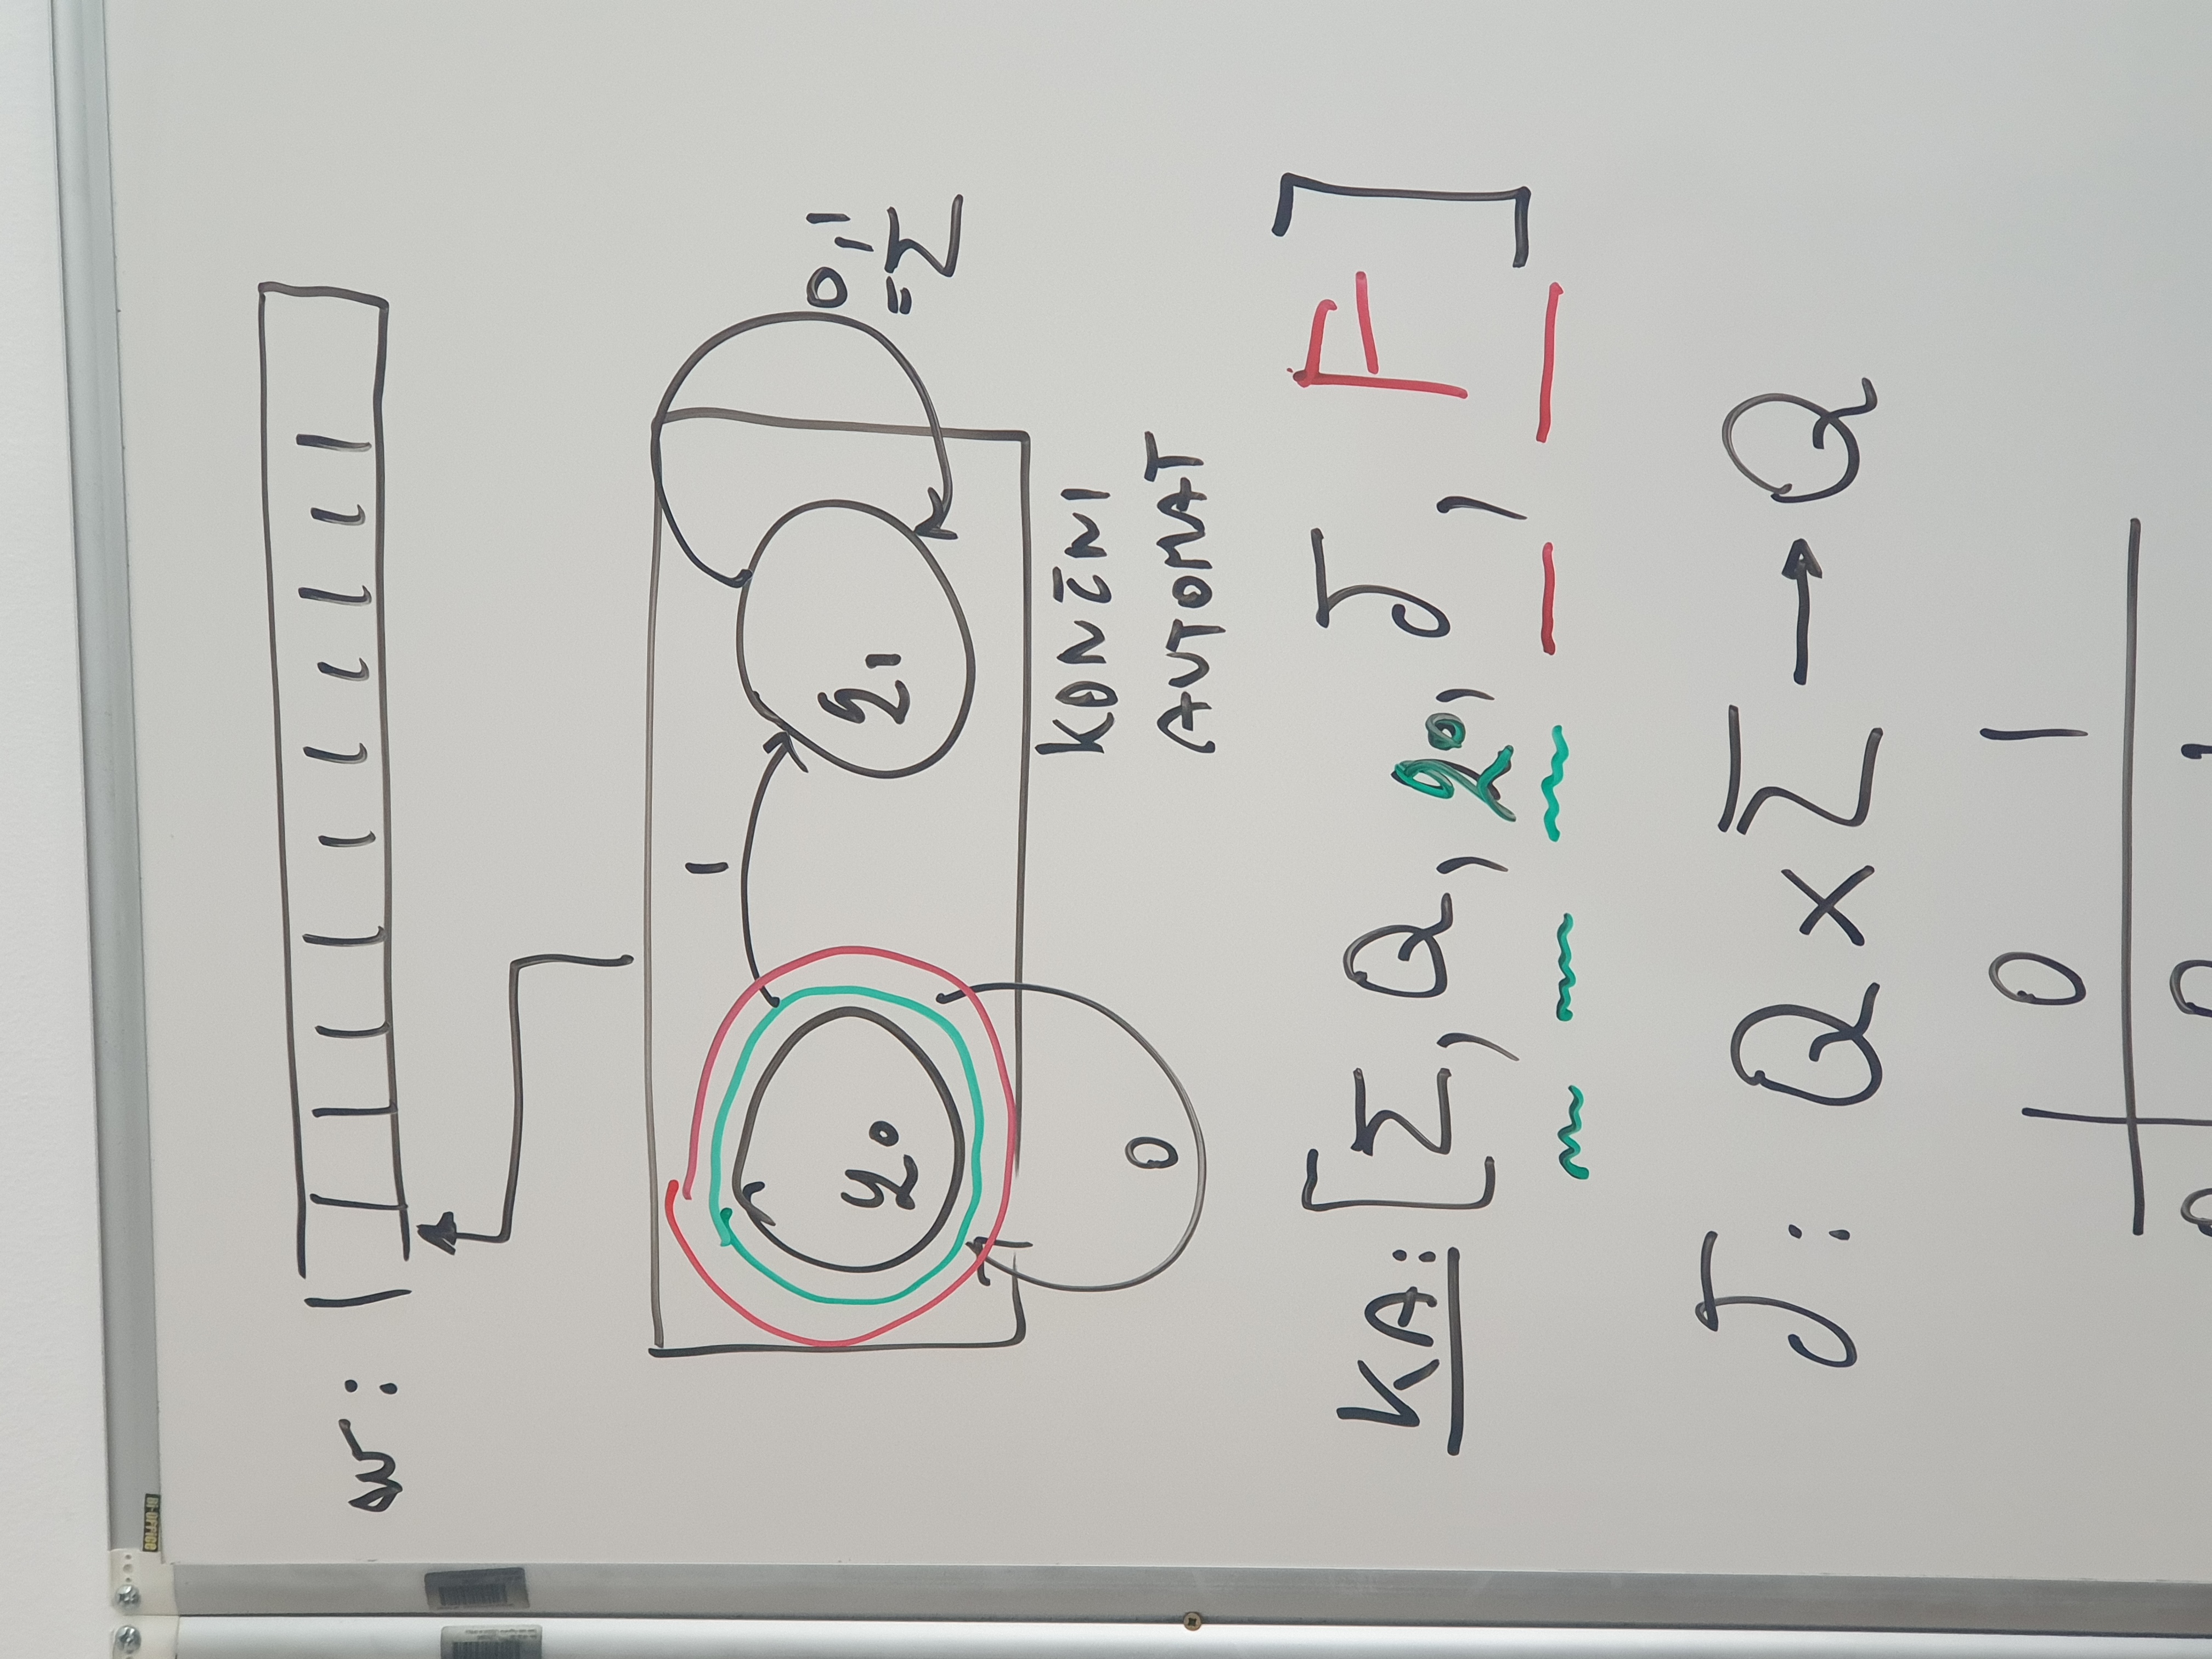 BI-OFFICE
w:
1
q0
q1
0,1
=Σ
0
KONČNI
AVTOMAT
KA: [Σ, Q, q0, δ, F]
δ: Q × Σ → Q
0 1
0 0 1